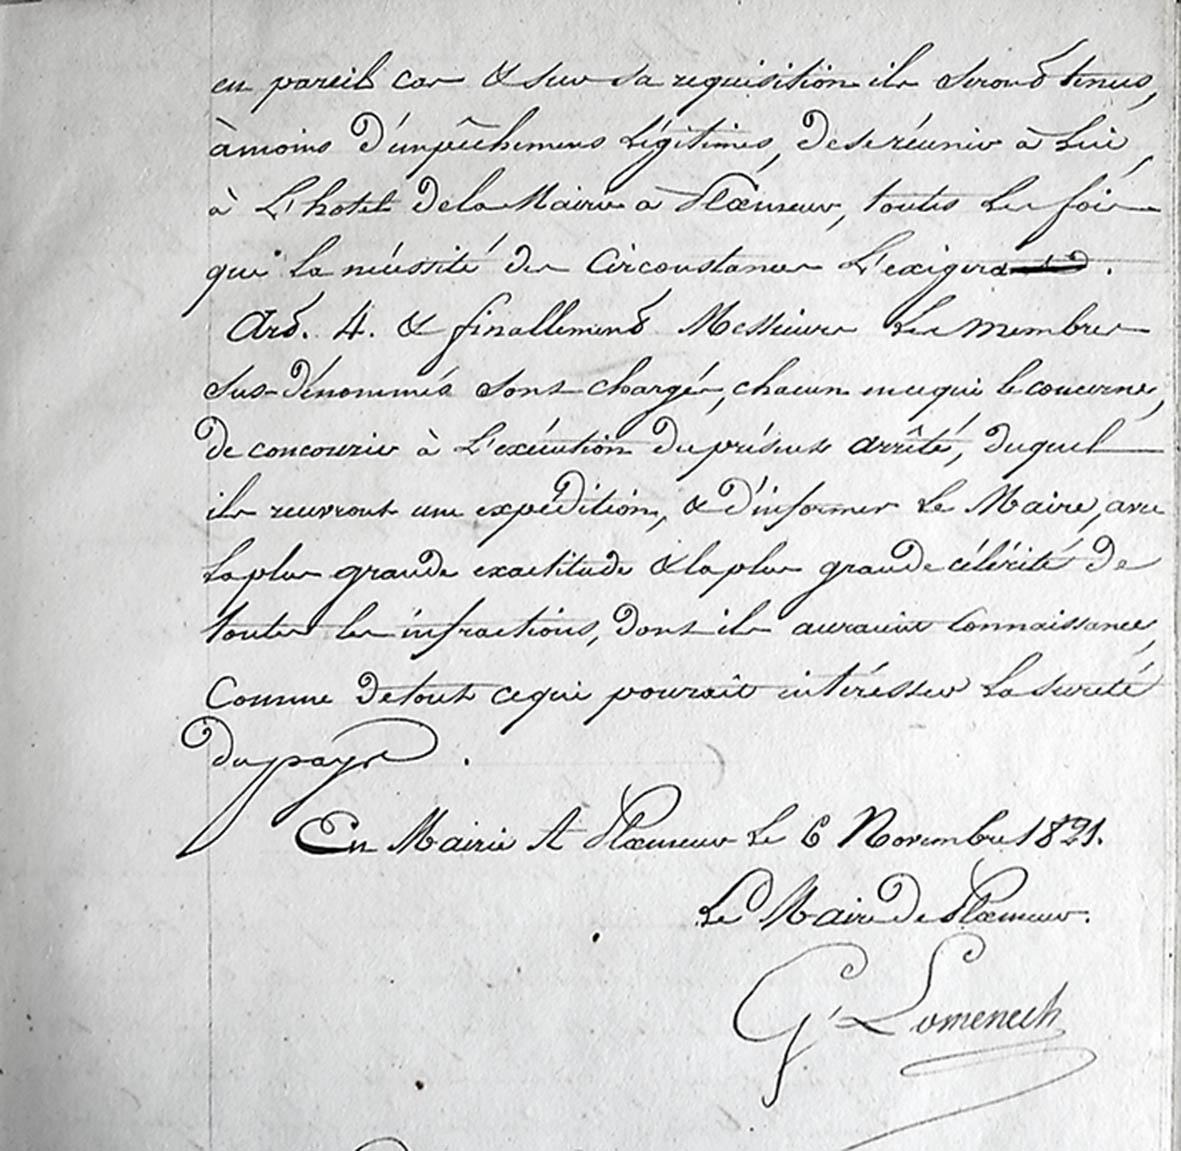 en pareil cas & sur sa requisition ils seront tenus,
à moins d'empêchemens légitimes, de se réunir à Lui,
à L'hotel de la Mairie à Plœmeur, toutes les fois
que la nécessité des Circonstances L'exigera.
Art. 4. & finallement Messieurs les membres
sus-dénommés sont chargés, chacun en ce qui le concerne,
de concourir à L'exécution du présent arrêté, duquel
ils recevront une expédition, & d'informer Le Maire, avec
la plus grande exactitude & la plus grande célérité de
toutes les infractions, dont ils auraient Connaissance,
Comme de tout ce qui pourrait intéresser La sureté
du pays.
En Mairie A Plœmeur Le 6 Novembre 1821.
Le Maire de Plœmeur.
G. Lomenech